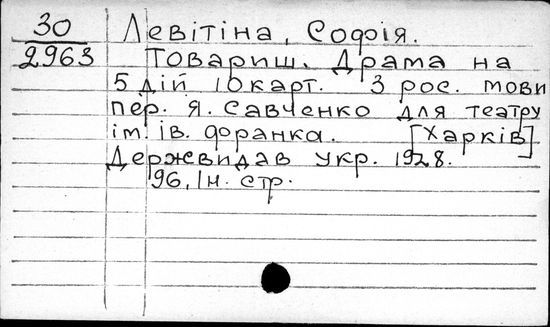 30 Левітіна, Софія.
2963 Товариш. Драма на
5 дій 10 карт. З рос. мови
пер. Я. Савченко для театру
ім. ів. франка. [Харків]
Держвидав укр. 1928.
96, 1н. стр.